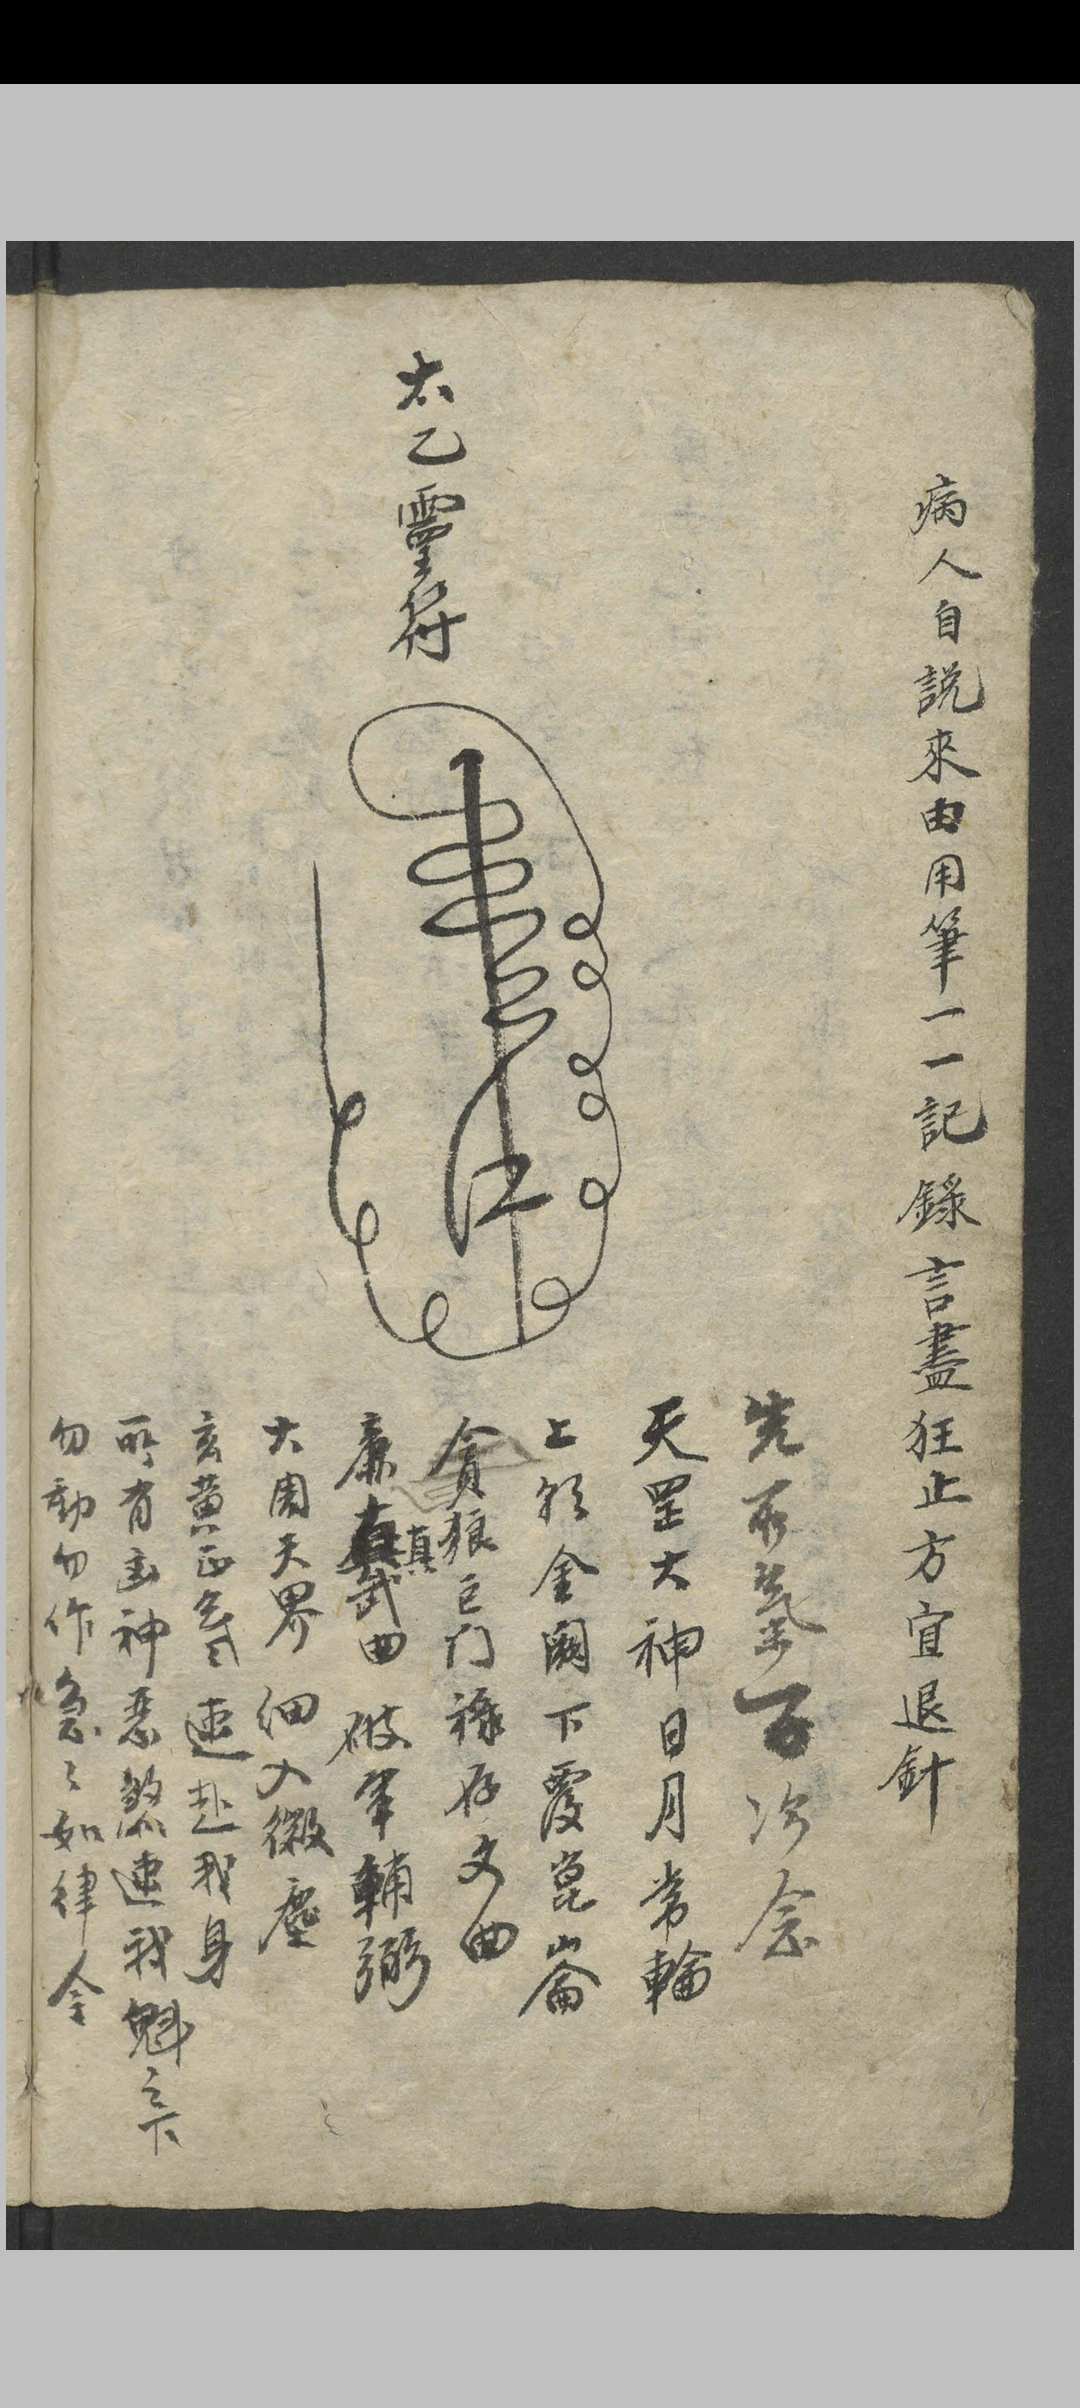 病人自説來由用筆一一記錄言盡狂止方宜退針
太乙靈符
先 次念
天罡大神日月常輪
上 金闕下覆崑崙
貪狼巨门祿存文曲
廉真武曲破軍輔弼
真
大周天界細入微塵
玄黄正炁速赴我身
所有凶神惡煞速我魁之下
勿動勿作急々如律令